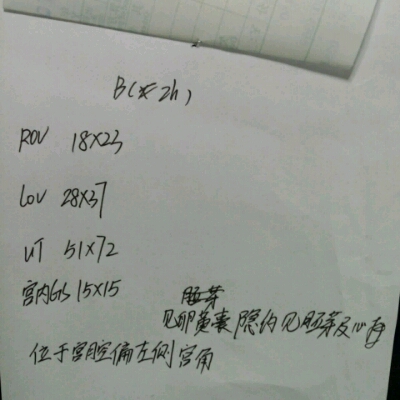 B(
ROV 18X23
LOV 28X37
UT 51X72
宫内GS 15X15
胚芽
见卵黄囊 隐约见胚芽及心
位于宫腔偏左侧宫角